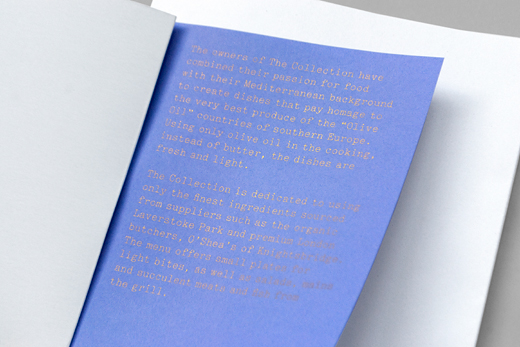 The owners of The Collection have
combined their passion for food
with their Mediterranean background
to create dishes that pay homage to
the very best produce of the "Olive
Oil" countries of southern Europe.
Using only olive oil in the cooking,
instead of butter, the dishes are
fresh and light.
The Collection is dedicated to using
only the finest ingredients sourced
from suppliers such as the organic
Laverstoke Park and premium London
butchers, O'Shea's of Knightsbridge.
The menu offers small plates and
light bites, as well as
and succulent meats and fish from
the grill.